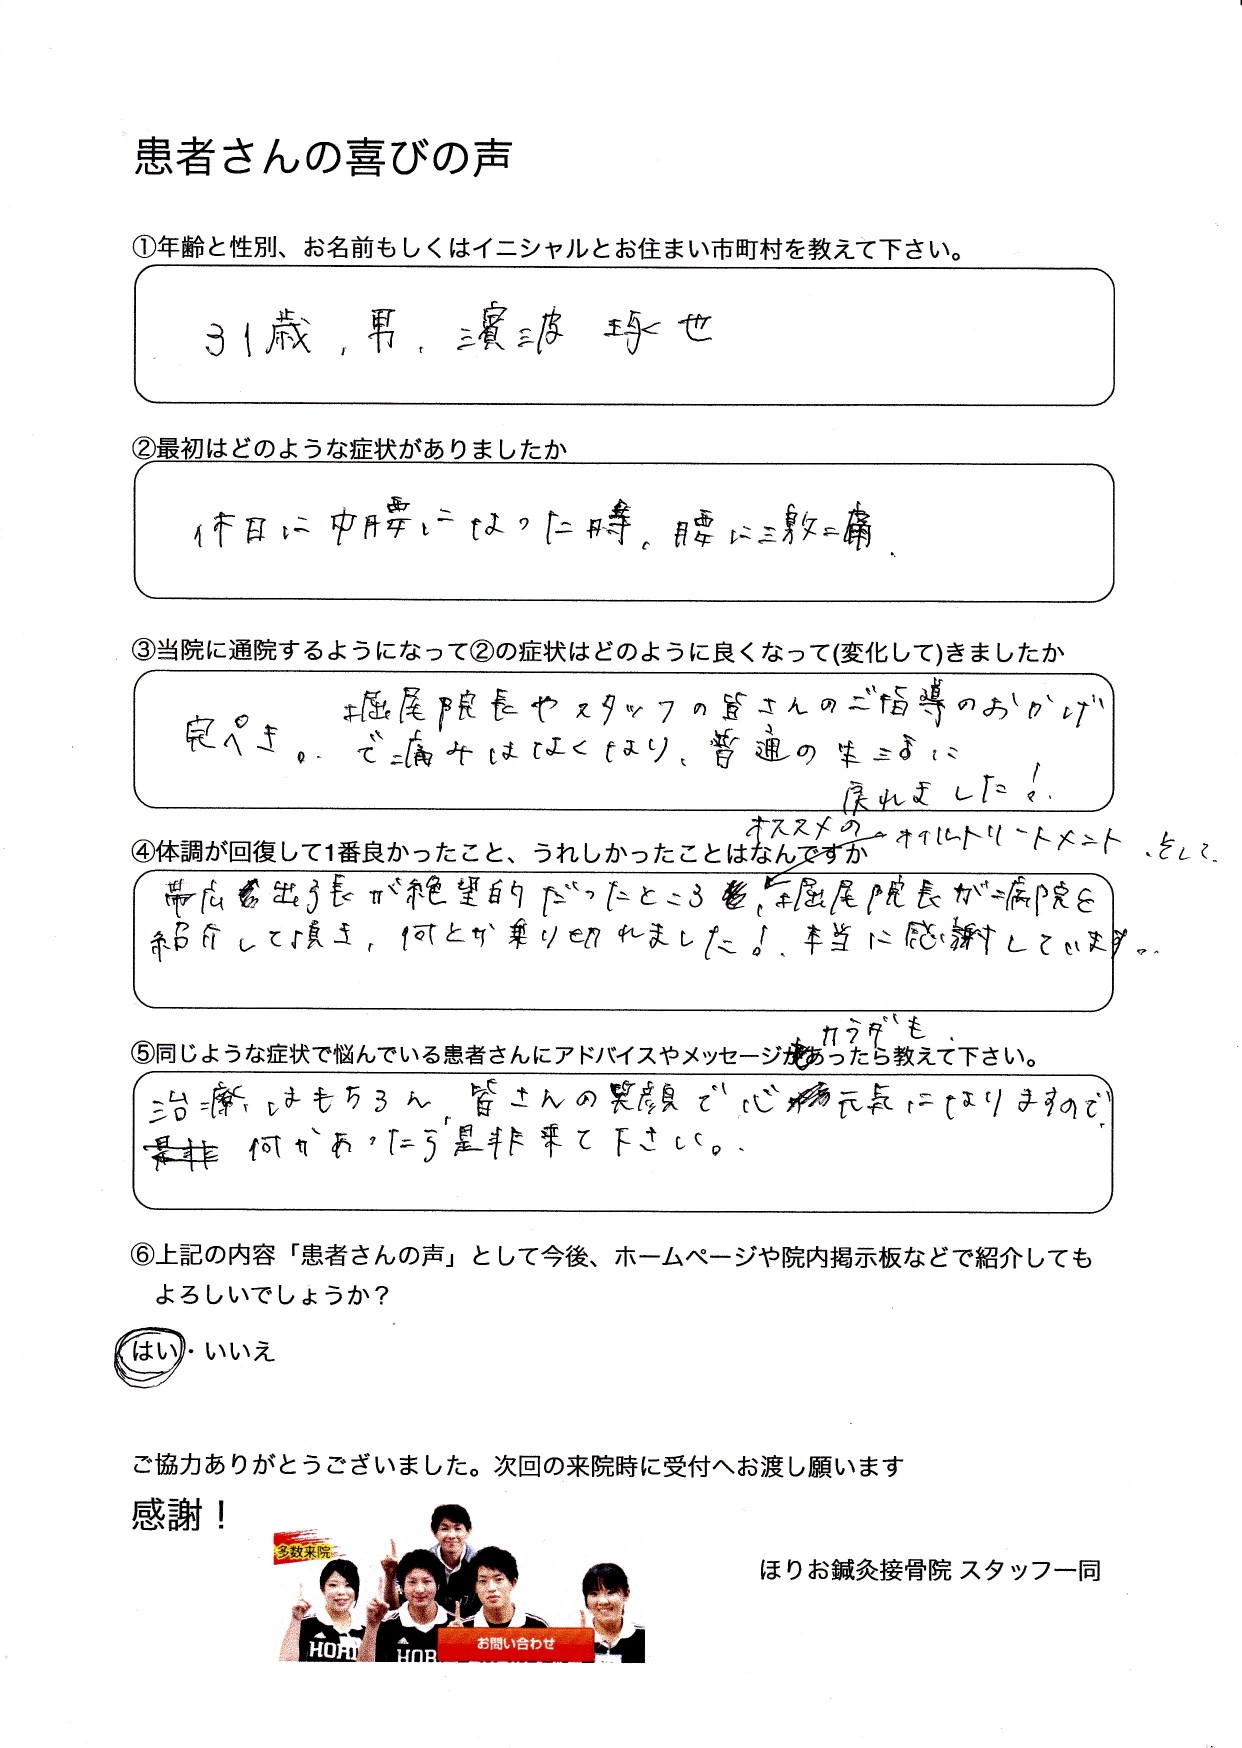 患者さんの喜びの声
①年齢と性別、お名前もしくはイニシャルとお住まい市町村を教えて下さい。
31歳、男、濱波 琢世
②最初はどのような症状がありましたか
休日に中腰になった時、腰に激痛、
③当院に通院するようになって②の症状はどのように良くなって(変化して)きましたか
完ぺき。
堀尾院長やスタッフの皆さんのご指導のおかげ
で痛みはなくなり、普通の生活に
戻れました!
④体調が回復して1番良かったこと、うれしかったことはなんですか
オススメのオイルトリートメント、そして、
帯広出張が絶望的だったところ、堀尾院長が病院を
紹介して頂き、何とか乗り切れました!本当に感謝しています。
⑤同じような症状で悩んでいる患者さんにアドバイスやメッセージがあったら教えて下さい。
カラダも
治療はもちろん、皆さんの笑顔で心元気になりますので、
何かあったら是非来て下さい。
⑥上記の内容「患者さんの声」として今後、ホームページや院内掲示板などで紹介しても
よろしいでしょうか?
はい・いいえ
ご協力ありがとうございました。次回の来院時に受付へお渡し願います
感謝!
多数来院
ほりお鍼灸接骨院 スタッフ一同
お問い合わせ
HORI
HOR